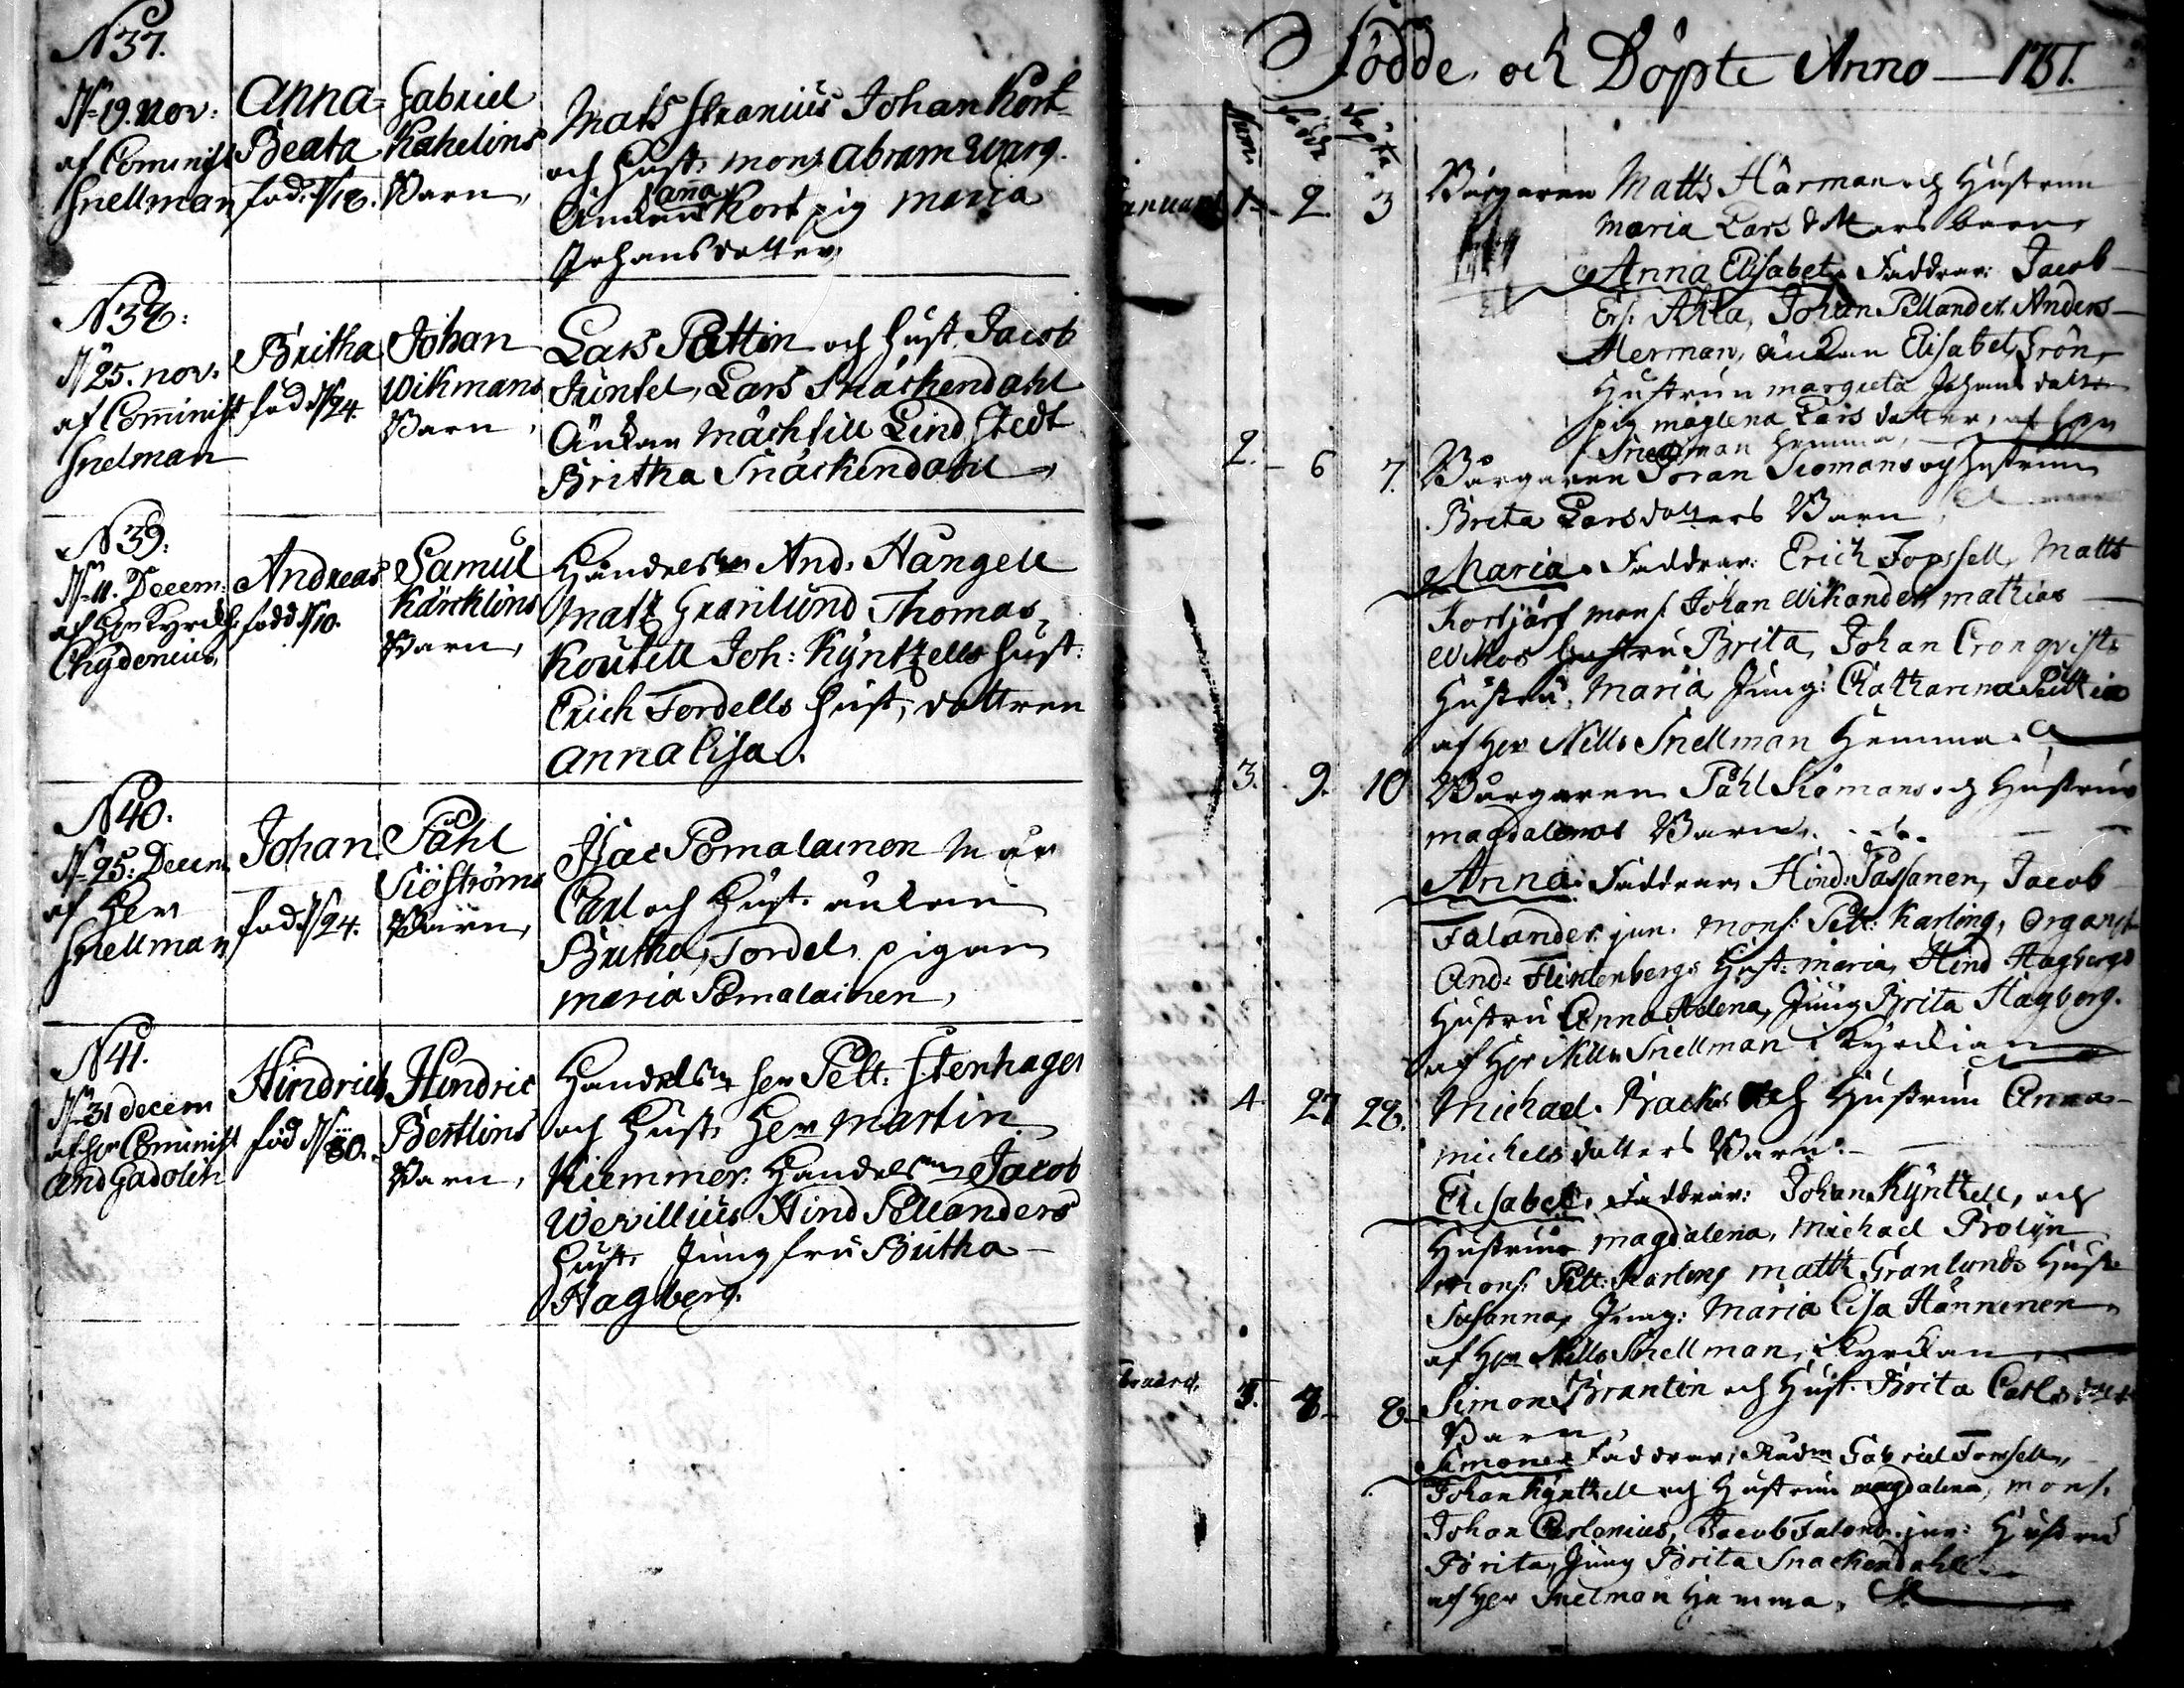 N 37.
19. Nov:
af Cominist
Snellman
Anna
Beata
född. 18.
Gabriel
Kahelins
Barn,
Mats Stranius Johan Kort
och Hust. mons. Abram Warg.
Änckan Kort pig maria
ana
Johansdotter
N 38:
25. nov.
af Cominist
Snelman
Britha
född 24.
Johan
Wikmans
Barn,
Lars Pattin och Hust. Jacob
Junsel, Lars Snäckendahl
Änckan Mächtill Lindstedt
Britha Snäckendahl
N 39:
11. Decem:
af Hr Kyrckh
Chydenius,
Andreas
född 10.
Samul
Karcklins
Barn,
Handelsm And. Hangell
Matz Granlund Thomas
Koutell Joh: Kyntzells Hust.
Erich Fordells Hust, dottren
Anna Lisa.
N 40.
25: Decem
af Her
Snellman
Johan
född 24.
Påhl
Siöströms
Barn,
Isac Pomalainen Mur
Carl och Hust. änckan
Britha Fordel, pigan
Maria Pomalainen,
N 41.
31 decem
af Hr Cominist
And Gadolin
Hindrich
född 30.
Hindric
Bertlins
Barn,
Handelsm her Pett. Stenhagen
och Hust. Her Martin
Kiemmer. Handelsm Jacob
Wevillius Hind Pellanders
Hust. Jungfru Britha
Hagberg.
Födde och Döpte Anno 1751.
Num. Födde Döpte
Januari 1. 2. 3 Borgaren Matts Härman och Hustrun
Maria Lars dotters barn
Anna Elisabet. Faddrar: Jacob
Ers: Ahla, Johan Pellander Anders
Merman, änckan Elisabet Grön,
Hustrun margreta Johans dotter
pig maglena Lars dotter, af Her
Snellman Hemma,
2. 6 7. Borgaren Göran Siomans och Hustrun
Brita Larsdotters Barn,
Maria. Faddrar: Erich Forssell, Matts
Kortjärf mons: Johan Wikander mathias
Wikos Hustru Brita, Johan Cronqvists
Hustru, Maria Jung: Chatharina Pettia
af Her Nills Snellman Hemma.
3. 9. 10 Borgaren Påhl Siömans och Hustrun
magdalenas Barn.
Anna. Faddrar Hind: Passanen, Jacob
Falander jun. Mons: Pett: Karling, Organist
And: Flintenbergs Hust: Maria, Hind Hagbergs
Hustru Anna Helena, Jung Brita Hagberg.
af Her Nills Snellman i Kyrckian
4. 27 28. Michael Backs och Hustrun Anna
Michels dotters Barn.
Elisabet. Faddrar: Johan Kyntzell, och
Hustrun magdalena, Michael Brolyn
mons: Pett: Karling matth. Granlunds Hust
Susanna, Jung: Maria Lisa Hanninen
af Her Nills Snellman, i Kyrckan
5. 8. 8. Simon Brantin och Hust. Brita Carls dott
Barn,
Simon. Faddrar: Rådm Gabriel Forssell,
Johan Kyntzell och Hustrun magdalena, mons.
Johan Carlonius, Jacob Faland. jun: Hustru
Brita, Jung Brita Snackendahl.
af Her Snelman Hemma,